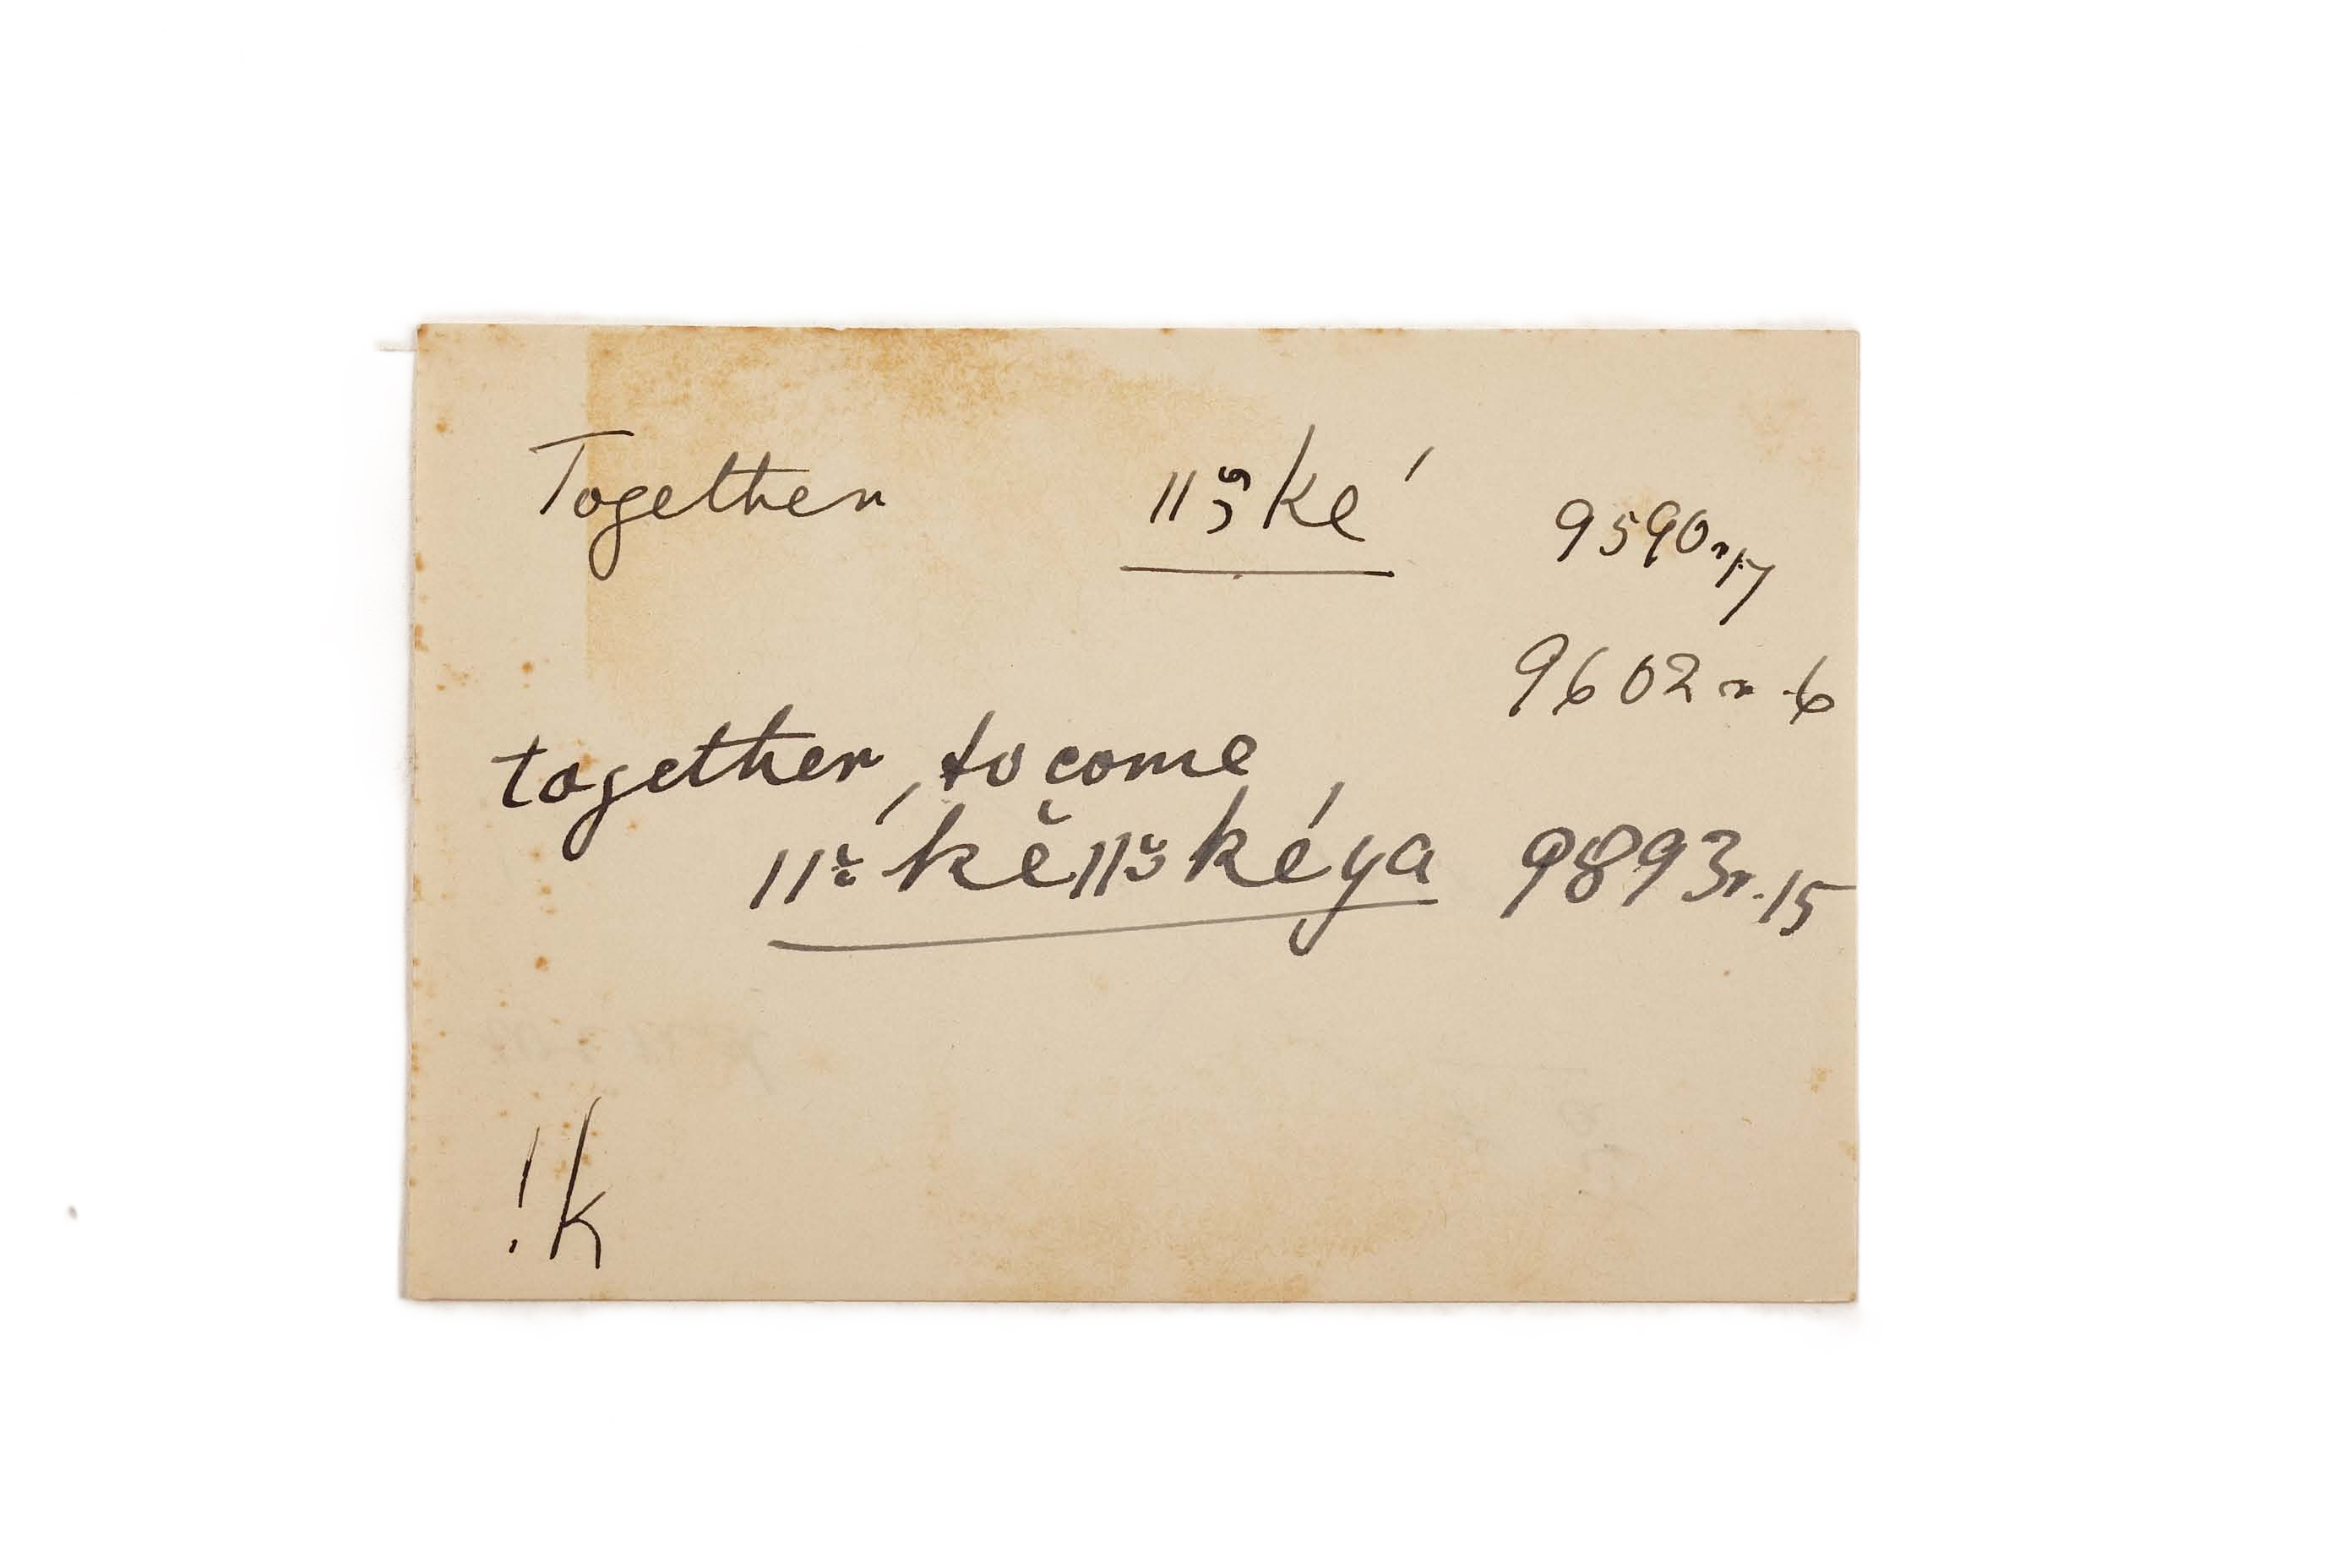 Together ǁké 9590r.17
9602r. 6
together, to come
ǁkĕǁkéya 9893r.15
!k